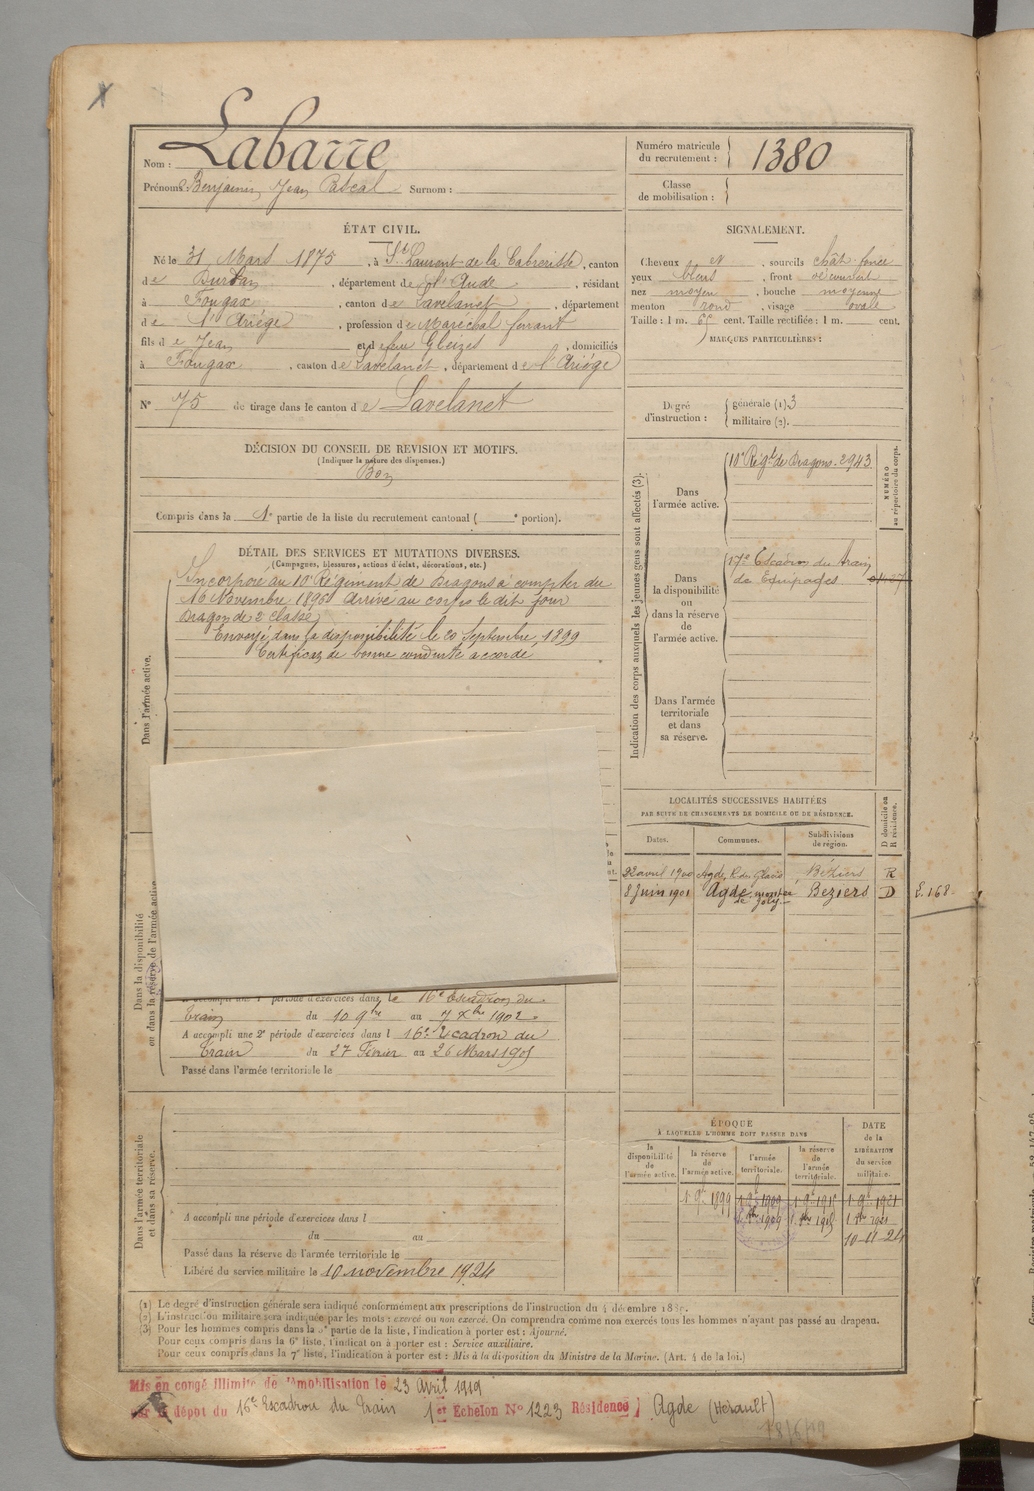 Nom : Labarre
Prénoms : Benjamin Jean Pascal Surnom :
Numéro matricule du recrutement : 1380
Classe de mobilisation :
ÉTAT CIVIL.
Né le 31 Mars 1875, à St Laurent de la Cabrerisse, canton
de Durban, département de l'Aude, résidant
à Fougax, canton de Lavelanet, département
de l'Ariège, profession de Maréchal ferrant
fils de Jean et d Gleizes, domiciliés
à Fougax, canton de Lavelanet, département de l'Ariège
N° 75 de tirage dans le canton de Lavelanet
SIGNALEMENT.
Cheveux N, sourcils chât foncé
yeux bleus, front
nez moyen, bouche moyenne
menton rond, visage ovale
Taille : 1 m. 65 cent. Taille rectifiée : 1 m. cent.
MARQUES PARTICULIÈRES :
Degré d'instruction : générale (1) 3
militaire (2).
DÉCISION DU CONSEIL DE REVISION ET MOTIFS.
(Indiquer la nature des dispenses.)
Bon
Compris dans la 1e partie de la liste du recrutement cantonal ( e portion).
DÉTAIL DES SERVICES ET MUTATIONS DIVERSES.
(Campagnes, blessures, actions d'éclat, décorations, etc.)
Dans l'armée active.
Incorporé au 10e Régiment de Dragons à compter du
16 Novembre 1896 arrivé au corps le dit jour
Dragon de 2e classe
Envoyé dans la disponibilité le 20 Septembre 1899
Certificat de bonne conduite accordé
Indication des corps auxquels les jeunes gens sont affectés (3).
NUMÉRO au répertoire du corps.
Dans l'armée active.
10e Régt de Dragons. 2943
Dans la disponibilité ou dans la réserve de l'armée active.
17e Escadron du Train
de Equipages
Dans l'armée territoriale et dans sa réserve.
LOCALITÉS SUCCESSIVES HABITÉES
PAR SUITE DE CHANGEMENTS DE DOMICILE OU DE RÉSIDENCE.
Dates. Communes. Subdivisions de région. D domicile ou R résidence.
22 avril 1900 Agde, R. du Glacis Béziers R
8 Juin 1901 Agde, montée de Joly Beziers D E. 168
Dans la disponibilité ou dans la réserve de l'armée active
A accompli une 1e période d'exercices dans le 16e Escadron du
Train du 10 9bre au 7 Xbre 1902
A accompli une 2e période d'exercices dans l 16e Escadron du
Train du 27 Février au 26 Mars 1905
Passé dans l'armée territoriale le
Dans l'armée territoriale et dans sa réserve.
A accompli une période d'exercices dans l
du au
Passé dans la réserve de l'armée territoriale le
Libéré du service militaire le 10 novembre 1924
ÉPOQUE
À LAQUELLE L'HOMME DOIT PASSER DANS
la disponibilité de l'armée active. la réserve de l'armée active. l'armée territoriale. la réserve de l'armée territoriale.
DATE de la LIBÉRATION du service militaire.
1 9b 1899 1 9b 1909 1 9b 1915 1 9b 1921
10-11-24
(1) Le degré d'instruction générale sera indiqué conformément aux prescriptions de l'instruction du 4 décembre 1889.
(2) L'instruction militaire sera indiquée par les mots : exercé ou non exercé. On comprendra comme non exercés tous les hommes n'ayant pas passé au drapeau.
(3) Pour les hommes compris dans la 5e partie de la liste, l'indication à porter est : Ajourné.
Pour ceux compris dans la 6e liste, l'indication à porter est : Service auxiliaire.
Pour ceux compris dans la 7e liste, l'indication à porter est : Mis à la disposition du Ministre de la Marine. (Art. 4 de la loi.)
Mis en congé illimité de démobilisation le 23 avril 1919
par le dépôt du 16e Escadron du Train 1er Echelon N° 1223 Résidence Agde (Hérault)